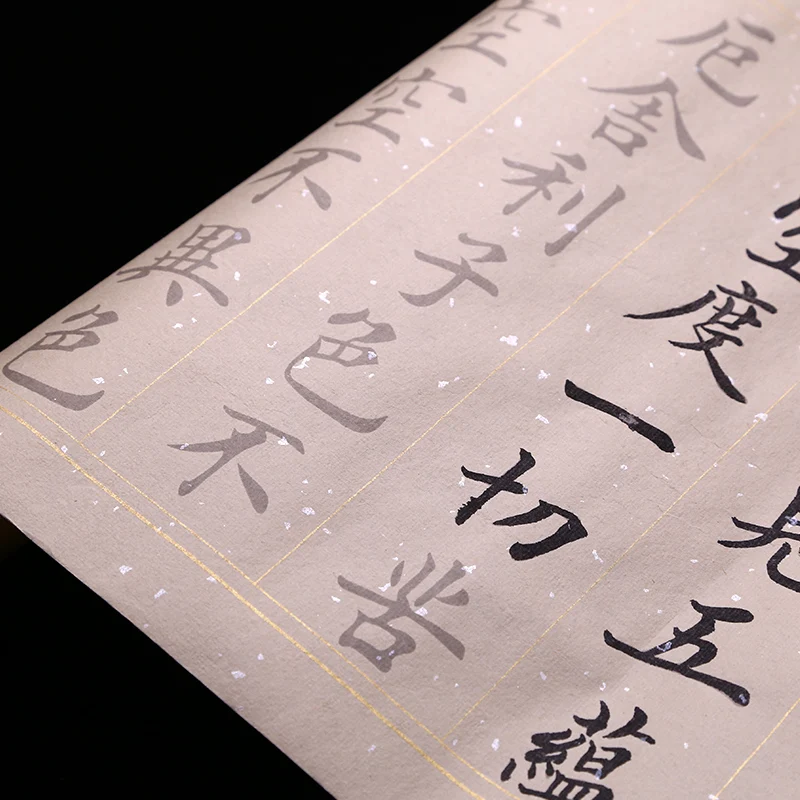 見五蘊
空度一切苦
厄舍利子色不
空空不異色